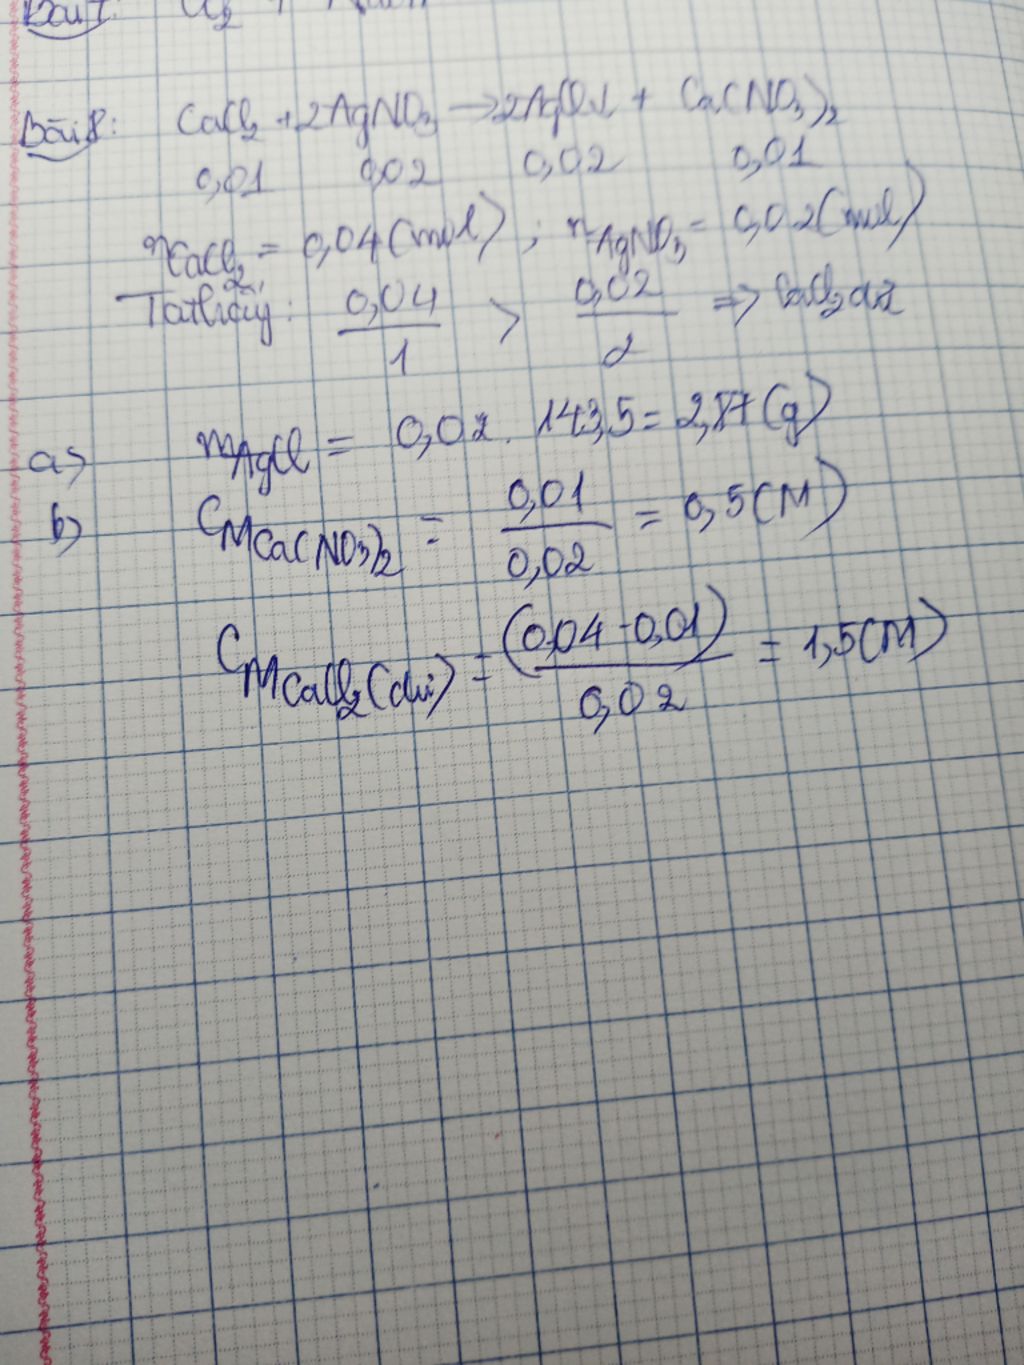 Bài 7:
Bài 8: CaCl₂ + 2AgNO₃ → 2AgCl↓ + Ca(NO₃)₂
0,01 0,02 0,02 0,01
nCaCl₂ = 0,04 (mol) ; nAgNO₃ = 0,02 (mol)
Ta thấy: 0,04/1 > 0,02/2 => CaCl₂ dư
a) mAgCl = 0,02 . 143,5 = 2,87 (g)
b) CM Ca(NO₃)₂ = 0,01/0,02 = 0,5 (M)
CM CaCl₂ (dư) = (0,04 - 0,01)/0,02 = 1,5 (M)